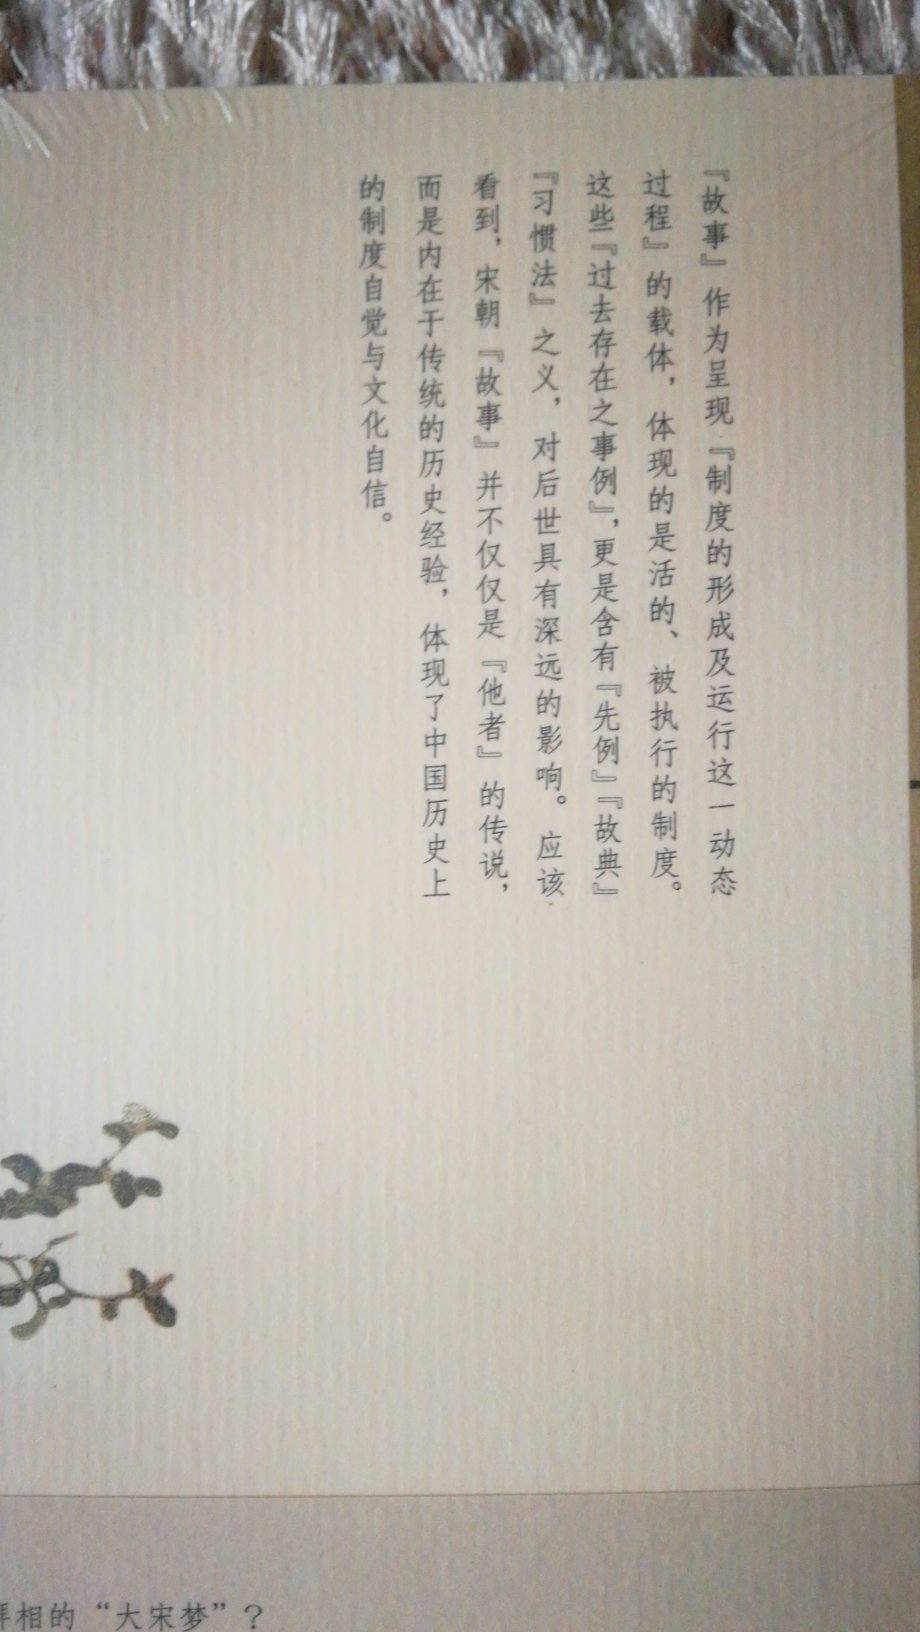 『故事』作为呈现『制度的形成及运行这一动态
过程』的载体，体现的是活的、被执行的制度。
这些『过去存在之事例』，更是含有『先例』『故典』
『习惯法』之义，对后世具有深远的影响。应该
看到，宋朝『故事』并不仅仅是『他者』的传说，
而是内在于传统的历史经验，体现了中国历史上
的制度自觉与文化自信。
相的“大宋梦”？